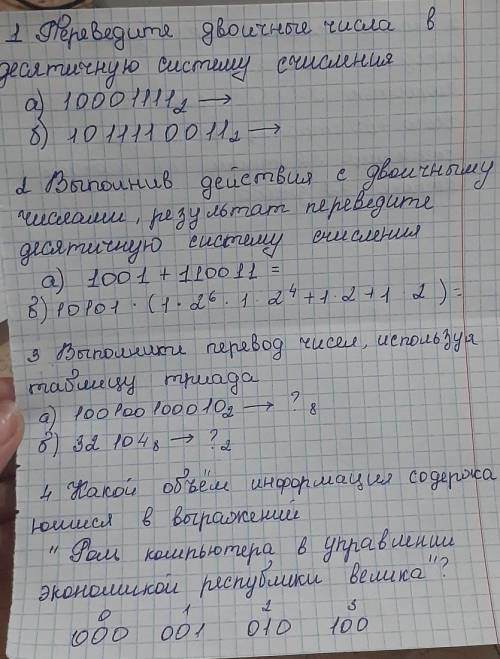 1 Переведите двоичные числа в
десятичную систему счисления
а) 10001111₂ →
б) 1011110011₂ →
2 Выполнив действия с двоичныму
числами, результат переведите
десятичную систему счисления
а) 1001 + 110011 =
в) 10101 · (1 · 2⁶ · 1 · 2⁴ + 1 · 2 + 1 · 2 ) =
3 Выполнити перевод чисел, используя
таблицу триада
а) 1001001000102 → ?₈
б) 32 104₈ → ?₂
4 Какой объём информация содержа
ющийся в выражений
"Роль компьютера в управлении
экономикой республики велика"?
0 1 2 3
000 001 010 100